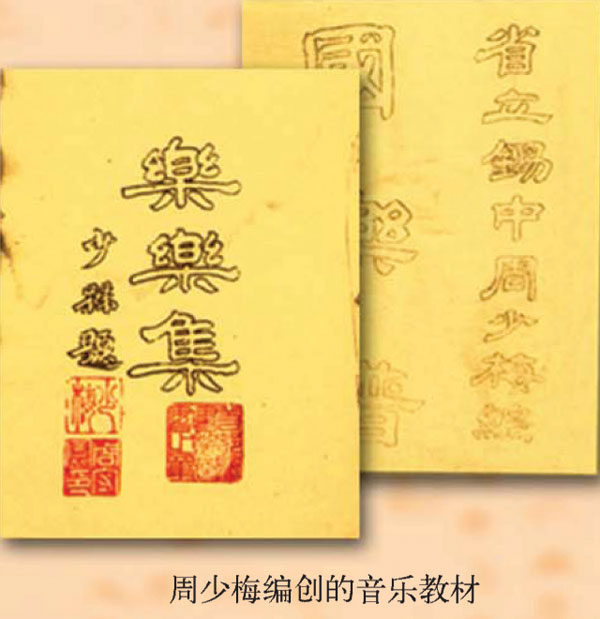 樂樂集
少題
省立錫中周少梅編
國樂譜
周少梅编创的音乐教材